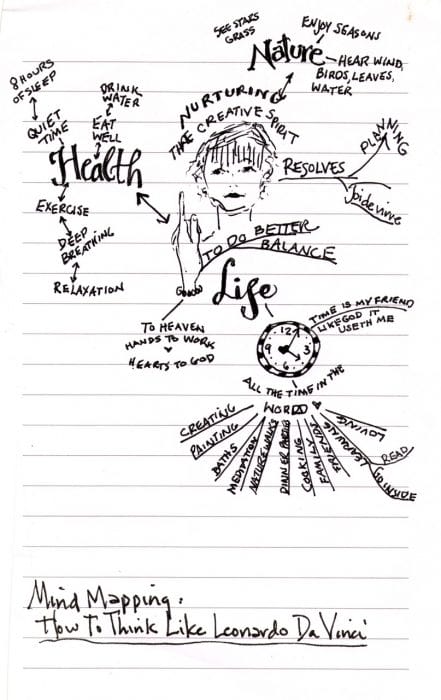 SEE STARS
GRASS
ENJOY SEASONS
Nature
HEAR WIND,
BIRDS, LEAVES,
WATER
8 HOURS
OF SLEEP
QUIET
TIME
DRINK
WATER
EAT
WELL
Health
EXERCISE
DEEP
BREATHING
RELAXATION
NURTURING
THE CREATIVE SPIRIT
RESOLVES
PLANNING
joi de vivre
TO DO BETTER
BALANCE
Life
TO HEAVEN
HANDS TO WORK
HEARTS TO GOD
TIME IS MY FRIEND
LIKE GOD IT
USETH ME
12
3
6
9
ALL THE TIME IN THE
WORLD
CREATING
PAINTING
BATHS
MEDITATION
NATURE WALKS
DINNER PARTIES
COOKING
FAMILY
FRIENDS
LEARNING
LOVING
READ
GO INSIDE
Mind Mapping:
How To Think Like Leonardo Da Vinci